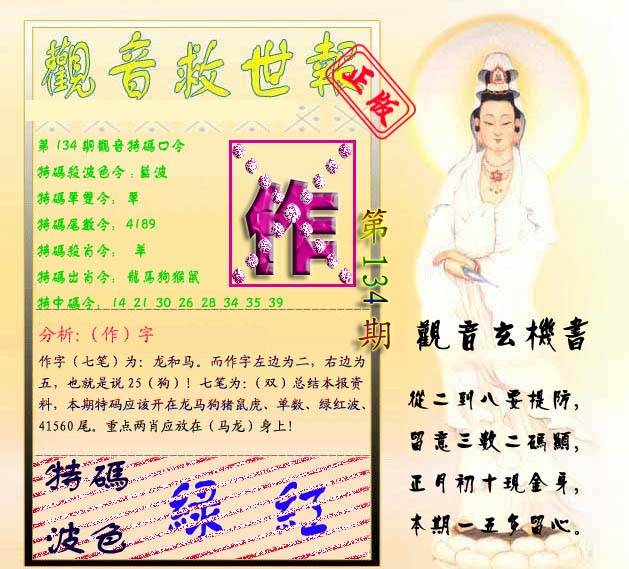 觀音救世報
正版
第134期觀音特碼口令
特碼殺波色令：藍波
特碼單雙令： 單
特碼尾數令： 4189
特碼殺肖令： 羊
特碼出肖令： 龍馬狗猴鼠
特中碼令： 14 21 30 26 28 34 35 39
作
第134期
分析:（作）字
作字（七笔）为：龙和马。而作字左边为二，右边为
五，也就是说25（狗）！七笔为：（双）总结本报资
料，本期特码应该开在龙马狗猪鼠虎、单数、绿红波、
41560尾。重点两肖应放在（马龙）身上！
特碼
波色
綠 紅
觀音玄機書
從二到八要提防，
留意三數二碼顯，
正月初十現金身，
本期一五多留心。